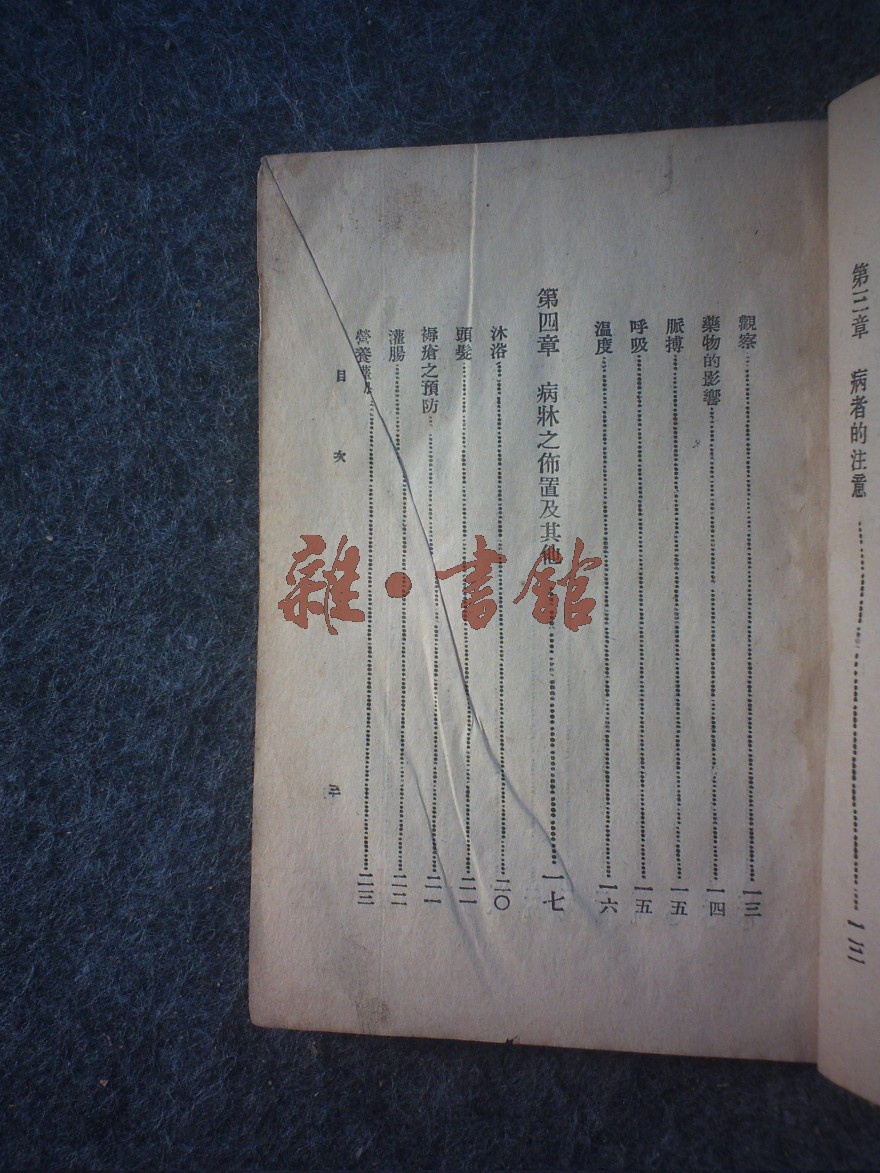 第三章　病者的注意……一三
觀察……一三
藥物的影響……一四
脈搏……一五
呼吸……一五
溫度……一六
第四章　病牀之佈置及其他……一七
沐浴……二〇
頭髮……二一
褥瘡之預防……二一
灌腸……二二
營養灌……二三
目次
雜·書館